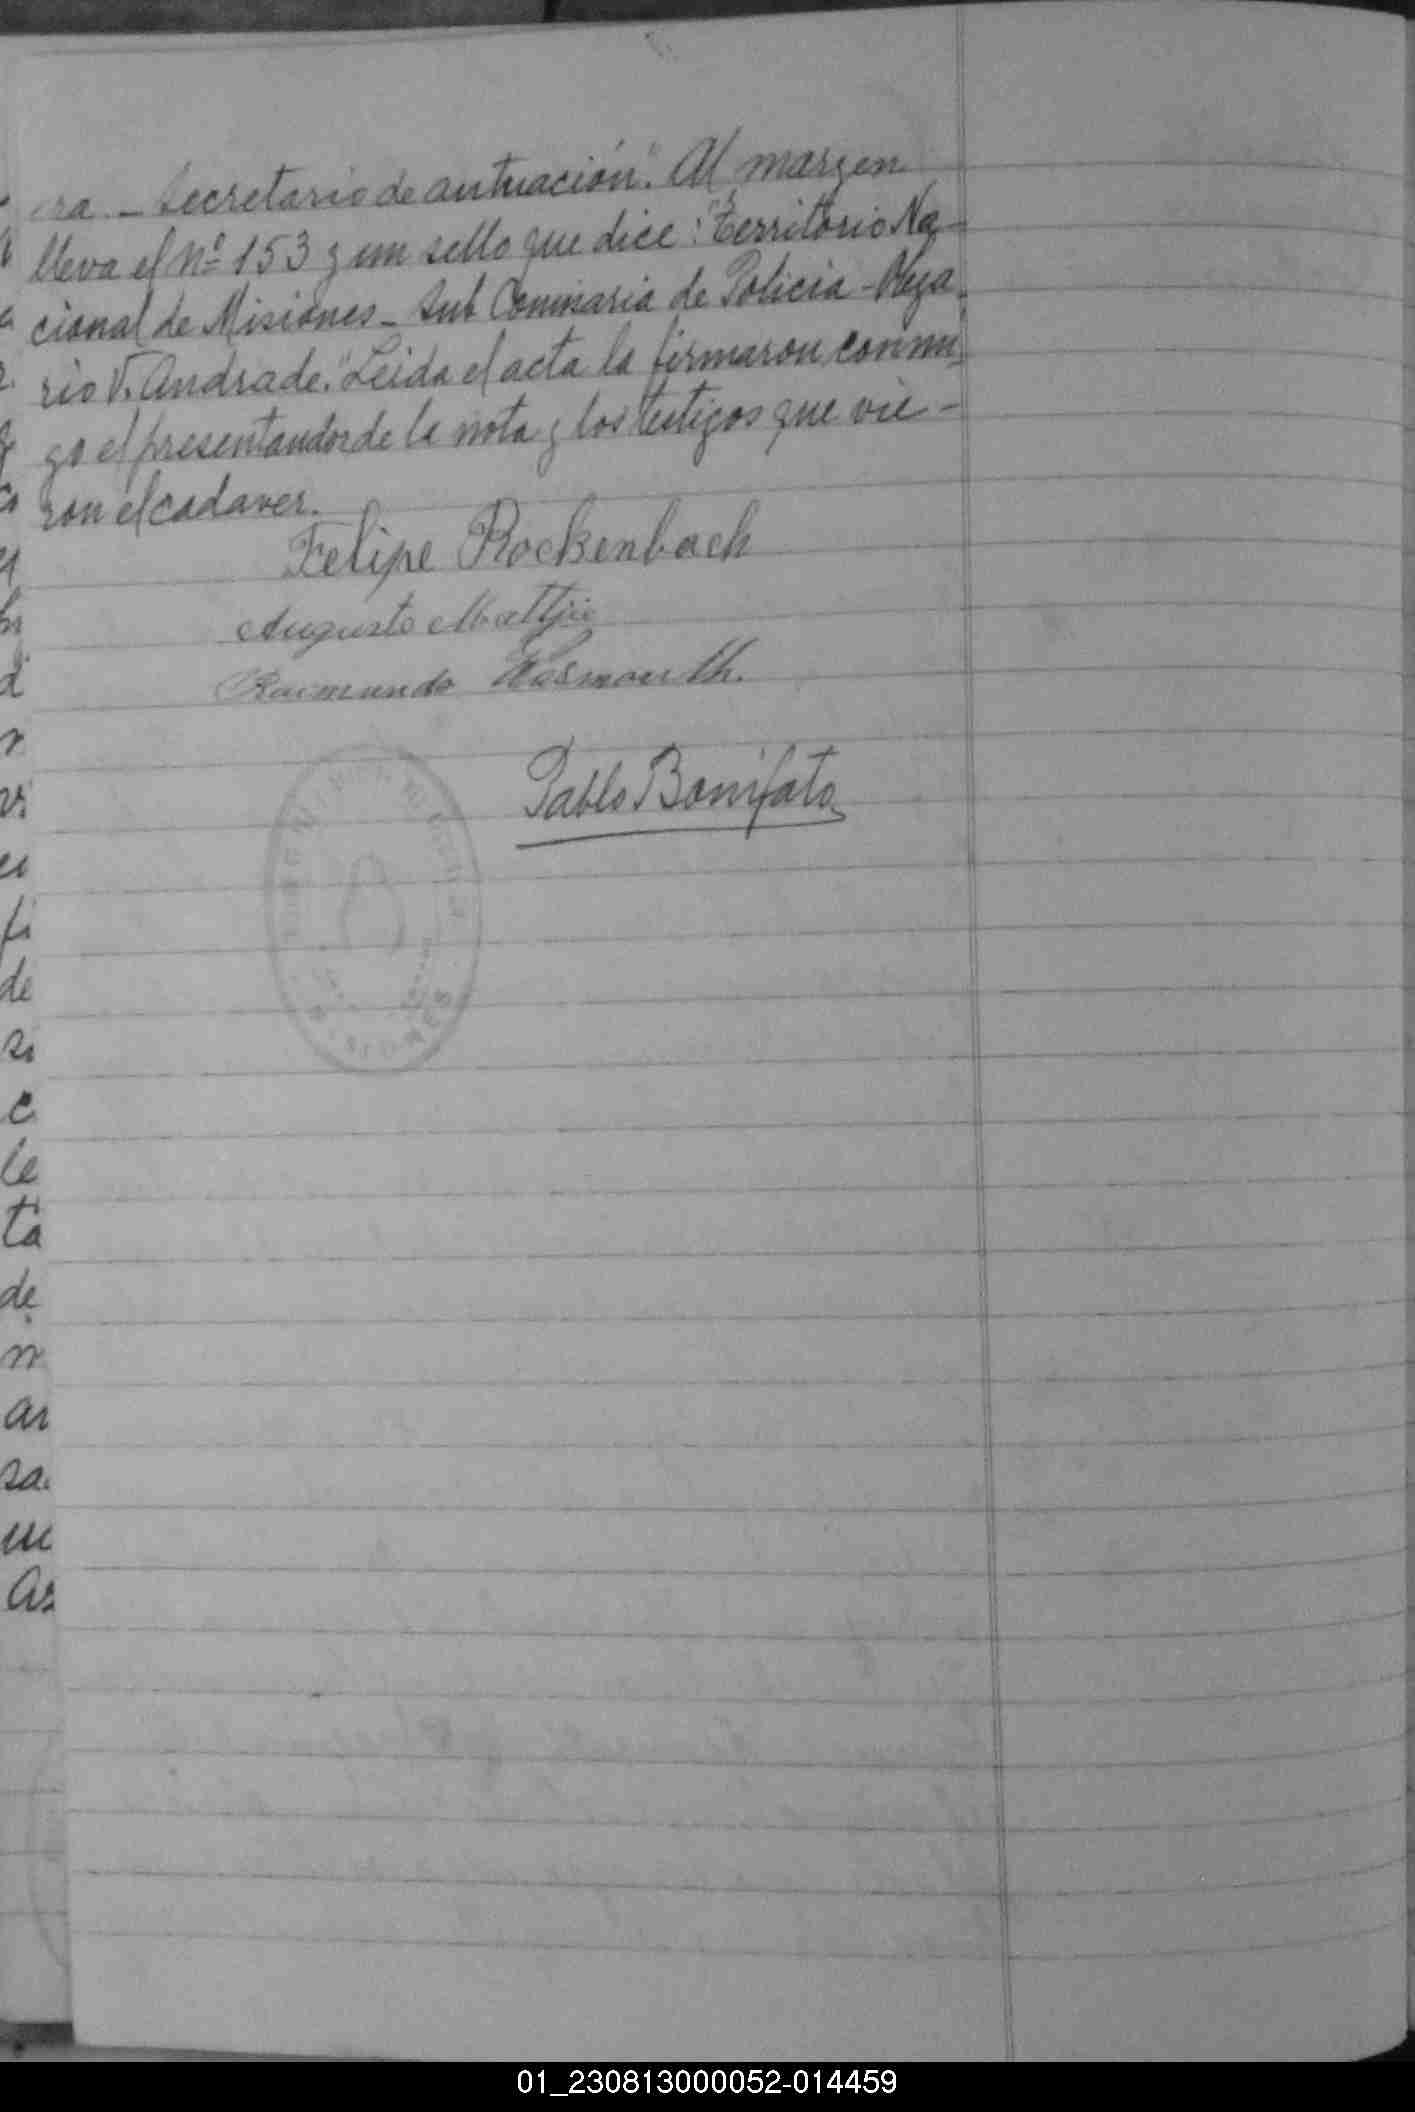 era. _ Secretario de autuación". Al margen
lleva el Nº 153 y un sello que dice: "Territorio Na-
cional de Misiones _ Sub Comisaria de Policia - Olega-
rio V. Andrade." Leida el acta la firmaron conmi-
go el presentandor de la nota y los testigos que vie-
ron el cadaver.
Felipe Rockenbach
Augusto Mattjie
Raimundo
Pablo Bonifato
MISIONES
fi
de
si
c
le
ta
de
m
ar
sa
as
01_230813000052-014459